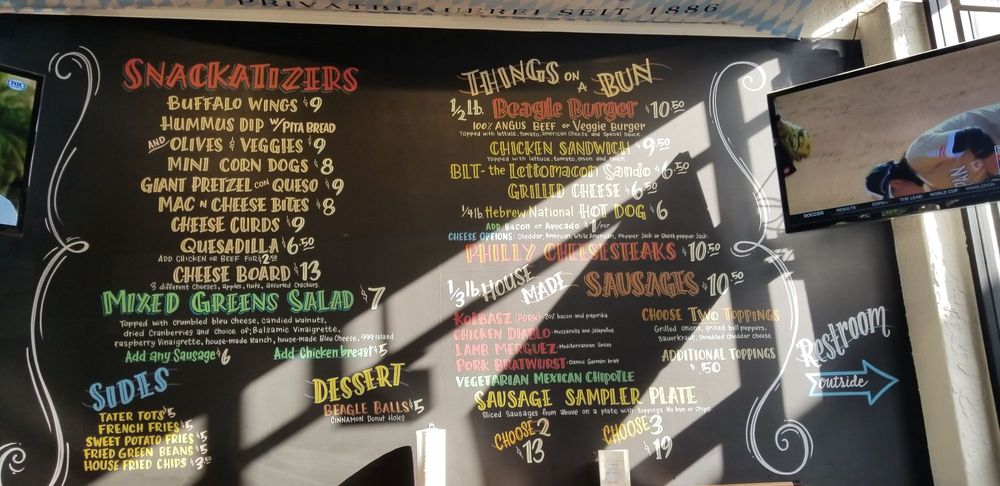 PRIVATBRAUEREI SEIT 1886
SNACKATIZERS
BUFFALO WINGS $9
HUMMUS DIP W/PITA BREAD
AND OLIVES & VEGGIES $9
MINI CORN DOGS $8
GIANT PRETZEL CON QUESO $9
MAC N CHEESE BITES $8
CHEESE CURDS $9
QUESADILLA $6.50
ADD CHICKEN OR BEEF FOR $2.50
CHEESE BOARD $13
3 different Cheeses, apples, nuts, assorted Crackers
MIXED GREENS SALAD $7
Topped with crumbled bleu cheese, candied walnuts,
dried Cranberries and Choice of: Balsamic Vinaigrette,
raspberry Vinaigrette, house-made Ranch, house-made Bleu Cheese, 999 island
Add any Sausage $6
Add Chicken breast $5
SIDES
TATER TOTS $5
FRENCH FRIES $5
SWEET POTATO FRIES $5
FRIED GREEN BEANS $5
HOUSE FRIED CHIPS $3.50
DESSERT
BEAGLE BALLS $5
CINNAMON DONUT HOLES
THINGS ON A BUN
1/2 lb. Beagle Burger $10.50
100% ANGUS BEEF or Veggie Burger
Topped with lettuce, tomato, american Cheese and Special Sauce
CHICKEN SANDWICH $9.50
Topped with lettuce, tomato, onion and ranch
BLT - the Lettomacon Sando $6.50
GRILLED CHEESE $6.50
1/4 lb Hebrew National HOT DOG $6
ADD Bacon or Avocado $1/Per
CHEESE OPTIONS: Cheddar, American, White American, Pepper Jack or Ghost pepper Jack.
PHILLY CHEESESTEAKS $10.50
1/3 lb HOUSE MADE SAUSAGES $10.50
KOLBASZ (PORK) - 20% bacon and paprika
CHICKEN DIABLO - mozzarella and Jalapeño
LAMB MERGUEZ - Mediterranean Spices
PORK BRATWURST - Classic German brat
VEGETARIAN MEXICAN CHIPOTLE
CHOOSE TWO TOPPINGS
Grilled Onions, grilled bell peppers,
Sauerkraut, shredded Cheddar Cheese
ADDITIONAL TOPPINGS
$.50
SAUSAGE SAMPLER PLATE
Sliced Sausages from above on a plate with toppings. No bun or chips
CHOOSE 2
$13
CHOOSE 3
$19
Restroom
outside
FOX
SOCCER RESULTS ESPN+ THE LEAD WORLD CUP WIMBLEDON